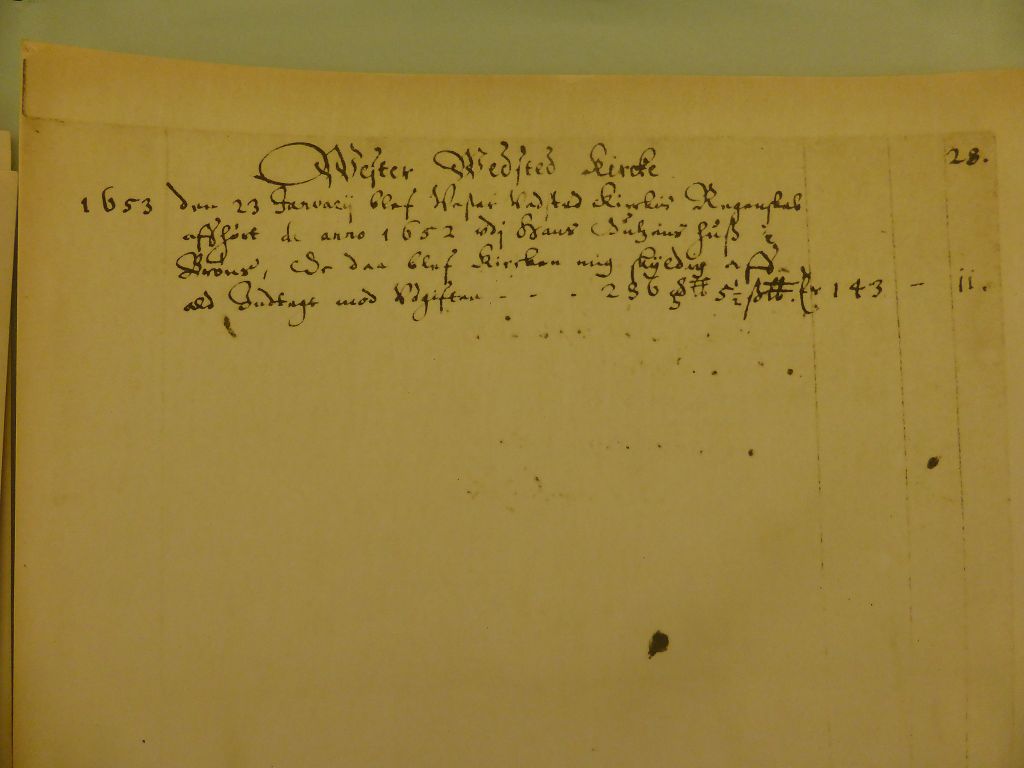 Wester Wedsted Kircke
28.
1653 den 23 Januarij blef Vester Vedsted Kirckis Regenskab
affhørt de anno 1652 udj Hans huß i
Brøns, da blef Kircken mig skyldig aff
ald Indtegt mod Udgiften - - - 236 5½ Er 143 - 11.